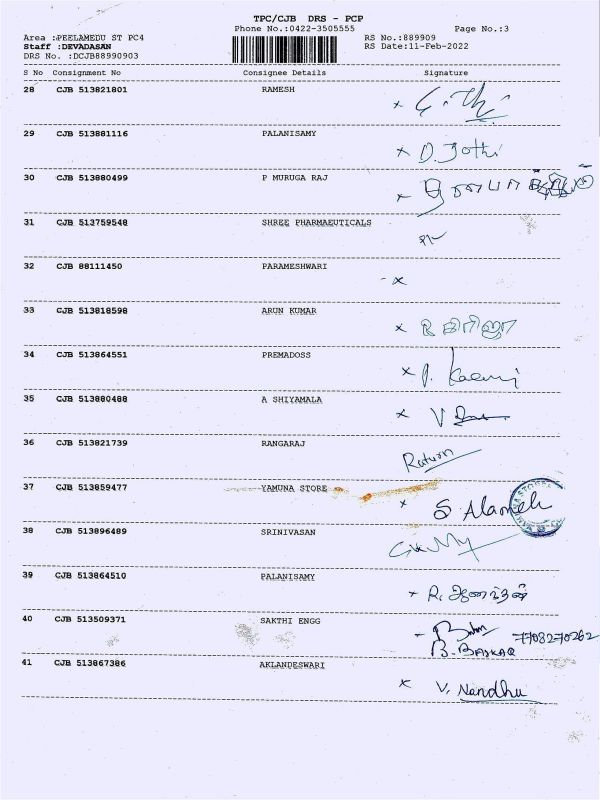 TPC/CJB DRS - PCP
Phone No.:0422-3505555 Page No.:3
Area :PEELAMEDU ST PC4 RS No.:889909
Staff :DEVADASAN RS Date:11-Feb-2022
DRS No. :DCJB88990903
S No Consignment No Consignee Details Signature
28 CJB 513821801 RAMESH x
29 CJB 513881116 PALANISAMY x D Jothi
30 CJB 513880499 P MURUGA RAJ x
31 CJB 513759548 SHREE PHARMAEUTICALS
32 CJB 88111450 PARAMESHWARI - x
33 CJB 513818598 ARUN KUMAR x
34 CJB 513864551 PREMADOSS x
35 CJB 513880488 A SHIYAMALA x V
36 CJB 513821739 RANGARAJ Raturn
37 CJB 513859477 YAMUNA STORE x S. Alameli
38 CJB 513896489 SRINIVASAN
39 CJB 513864510 PALANISAMY R.
40 CJB 513509371 SAKTHI ENGG 7708270262
B. BASKAR
41 CJB 513867386 AKLANDESWARI x V. Nandhu